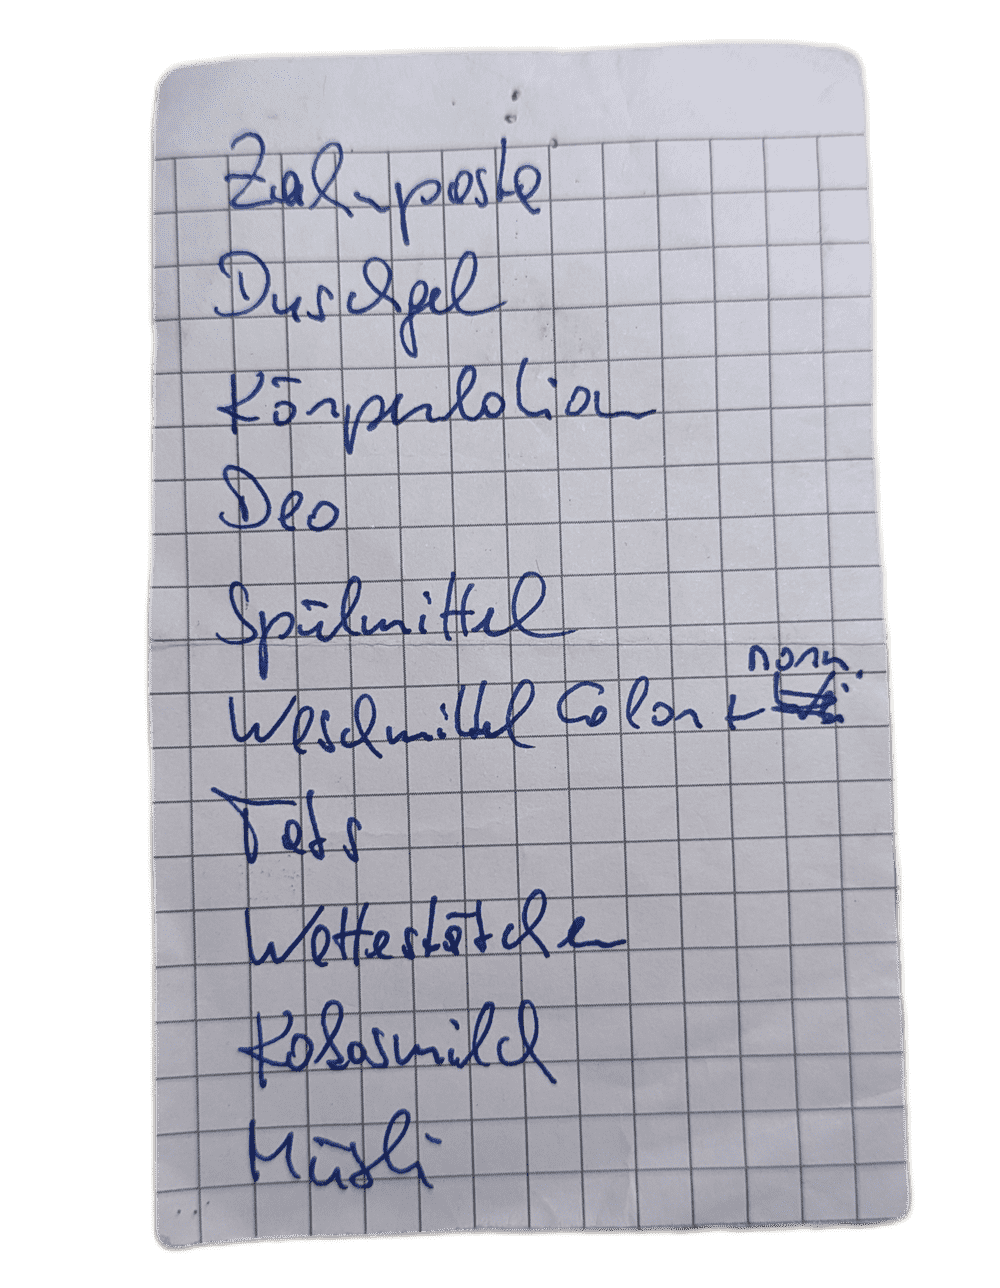 Zahnpaste
Duschgel
Körperlotion
Deo
Spülmittel
norm.
Waschmittel Color +
Tabs
Wattestäbchen
Kokosmilch
Müsli